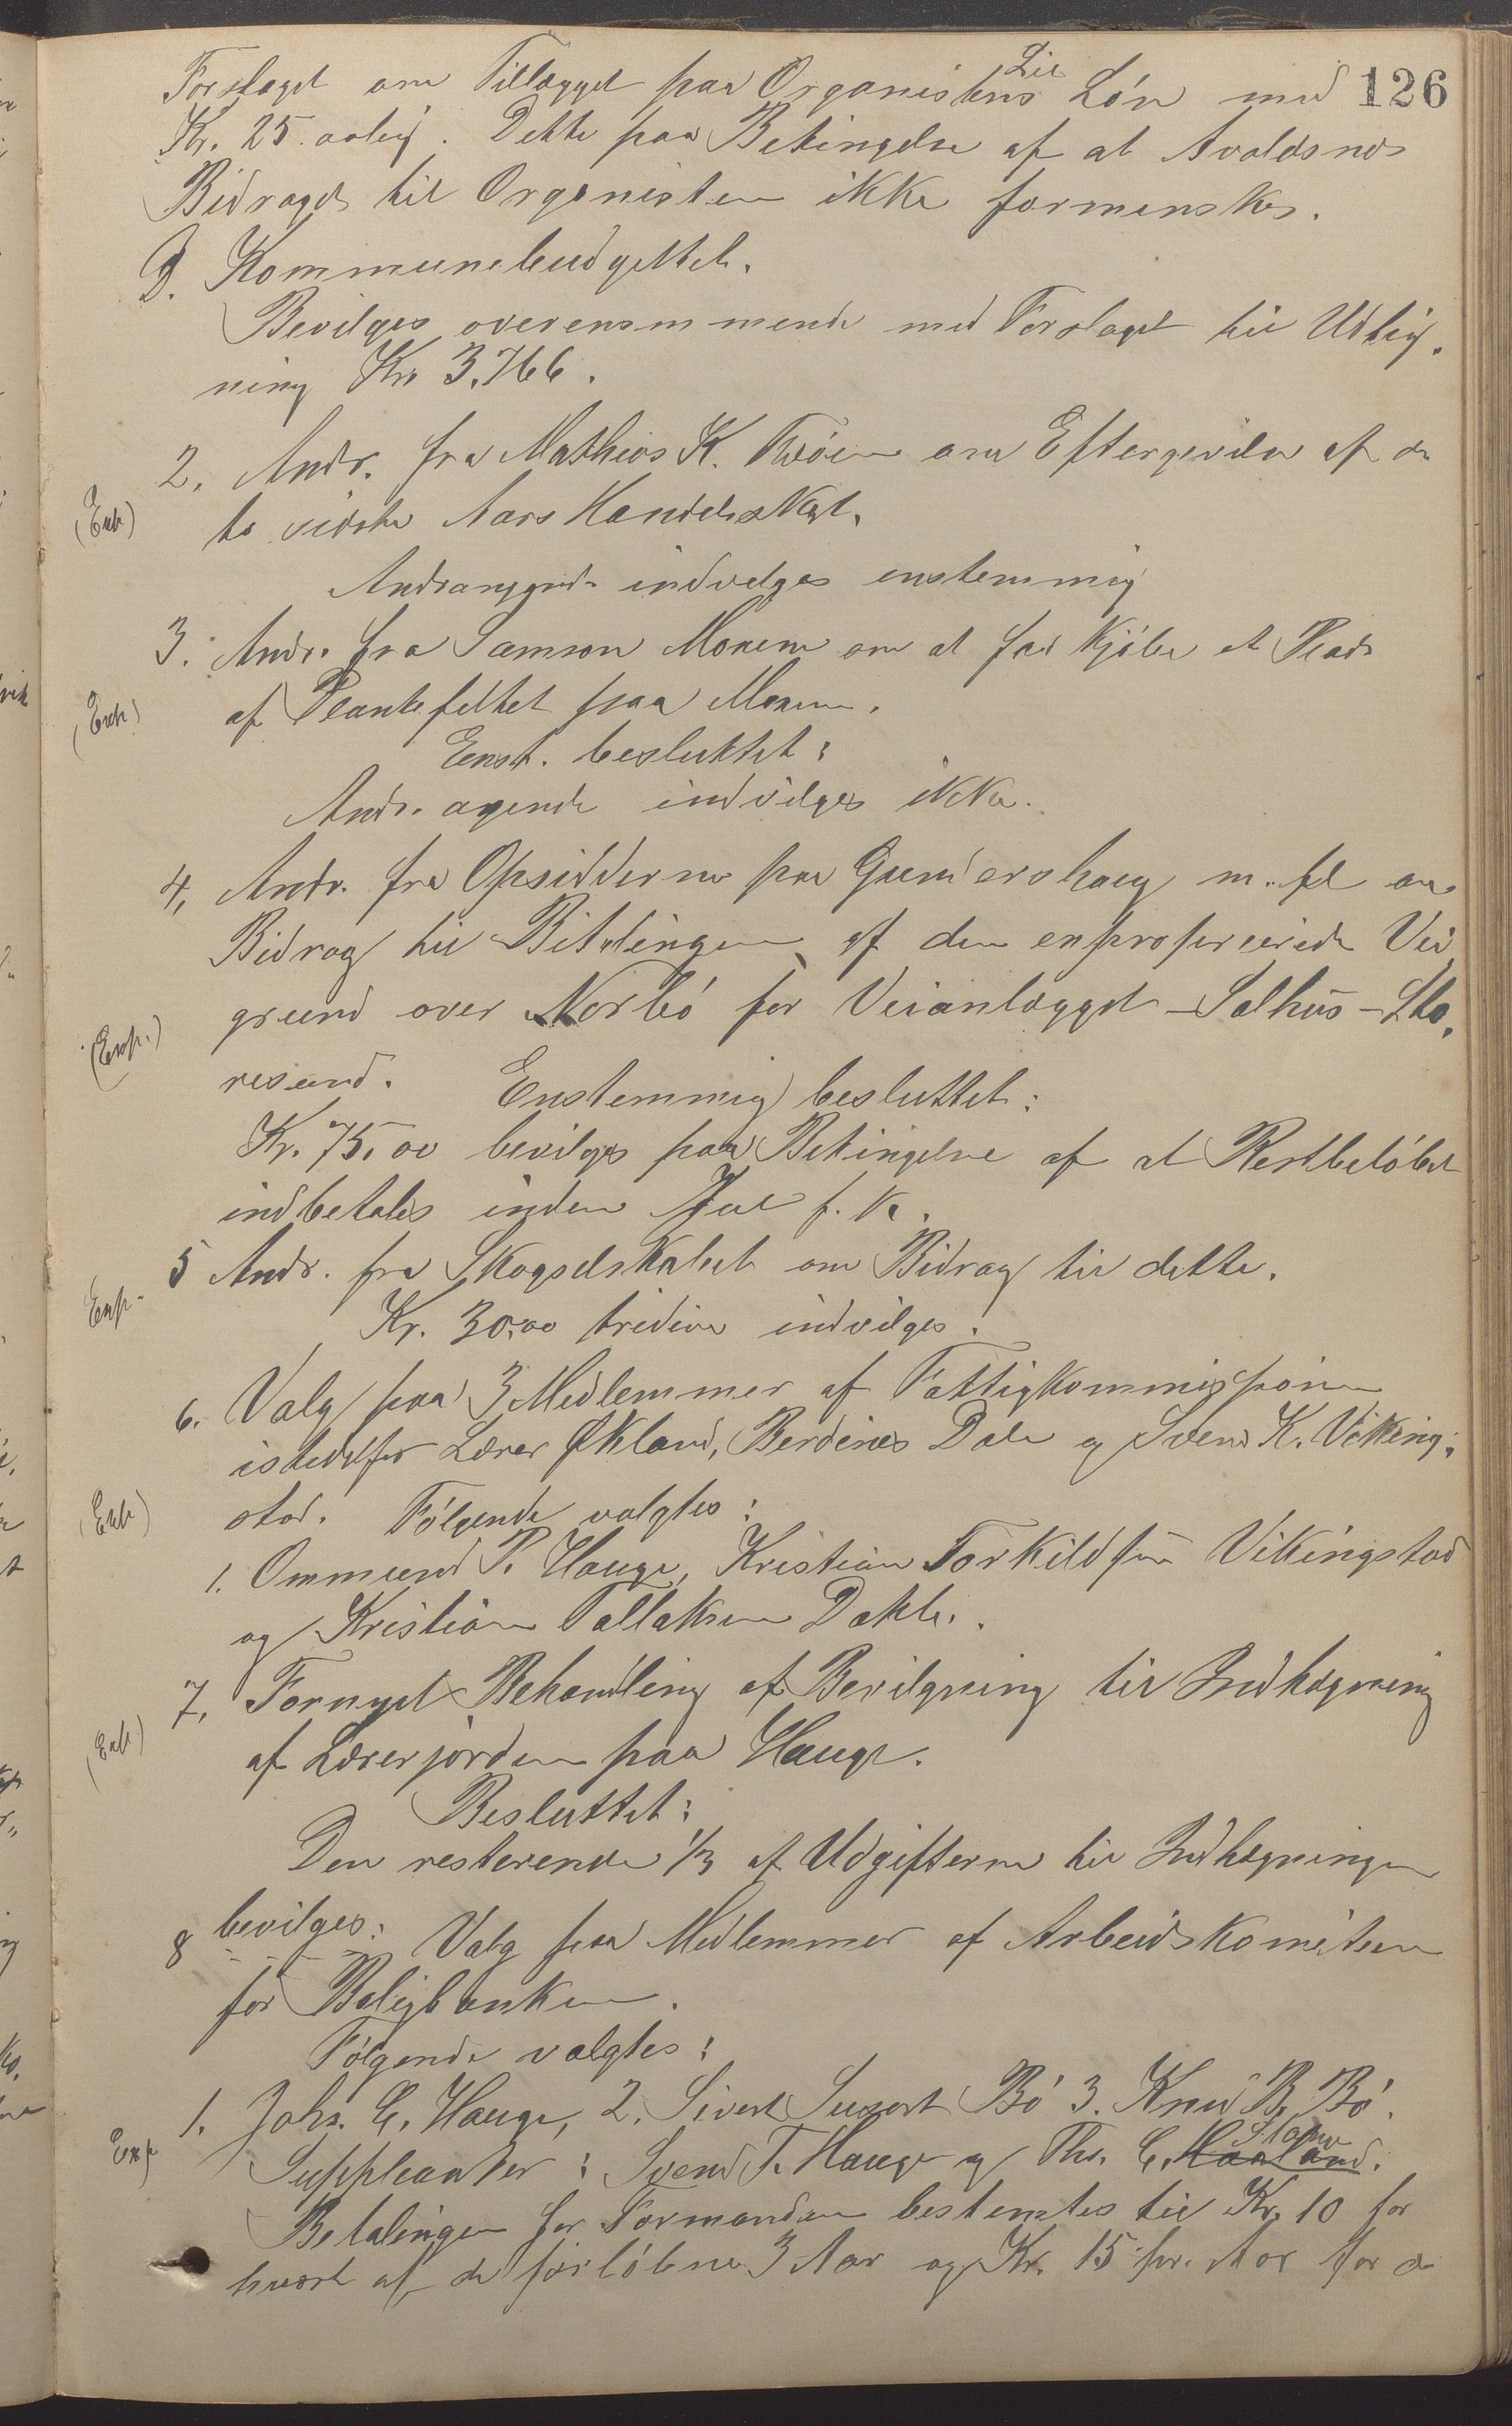 126
Forslaget om Tillægget paa Organistens Løn med
Kr. 25 aarlig. Dette paa Betingelse af at Avaldsnes
Bidraget til Organisten ikke formenskes.
D. Kommunebudgettet.
Bevilges overensmmende med Forslaget til Udlig-
ning Kr 3,766.
2. Andr. fra Mathias K. om Eftergivelse af de
to sidste Aars Handelsskat.
(Exp)
Andragende indvelges enstemmig
3. Andr. fra Samson Monem om at faa kjøbe et Plads
af Plantefeltet paa Monem.
(Exp)
Enst. besluttet:
Andr. agende indvilges ikke.
4, Andr. fra Opsidderne paa Gundershaug m. fl om
Bidrag til Betalingen af den exproprierede Vei
grund over Norbø for Veianlægget - Salhus - Sto-
(Exp.)
resund. Enstemmig besluttet:
Kr. 75,00 bevilges paa Betingelse af at Restbeløbet
indbetales inden Jul f. k.
5 Andr. fra Skogselskabet om Bidrag til dette.
Exp.
Kr. 30,00 tredive indvilges.
6. Valg paa 3 Medlemmer af Fattigkommissionen
istedetfor Lærer Økland, Berdines Dale og Svend K. Viking-
stad. Følgende valgtes:
(Exp)
1. Ommund P. Hauge, Kristian Torkildsen Vikingstad
og Kristian Tallaksen Dahle.
7, Fornyet Behandling af Bevilgning til Indhegning
af Lærerjorden paa Hauge.
(Exp)
Besluttet:
Den resterende 1/3 af Udgifterne til Indhegningen
bevilges:
8 Valg paa Medlemmer af Arbeidskomiteen
for Boligbanken.
Følgende valgtes:
1. Johs. E. Hauge, 2. Sivert Bø 3. Knud B. Bø.
Exp
Suppleanter: Svend T. Hauge og Ths. C. Haaland.
Betalingen for Formanden bestemtes til Kr. 10 for
hvert af de forløbne 3 Aar og Kr. 15 pr. Aar for de